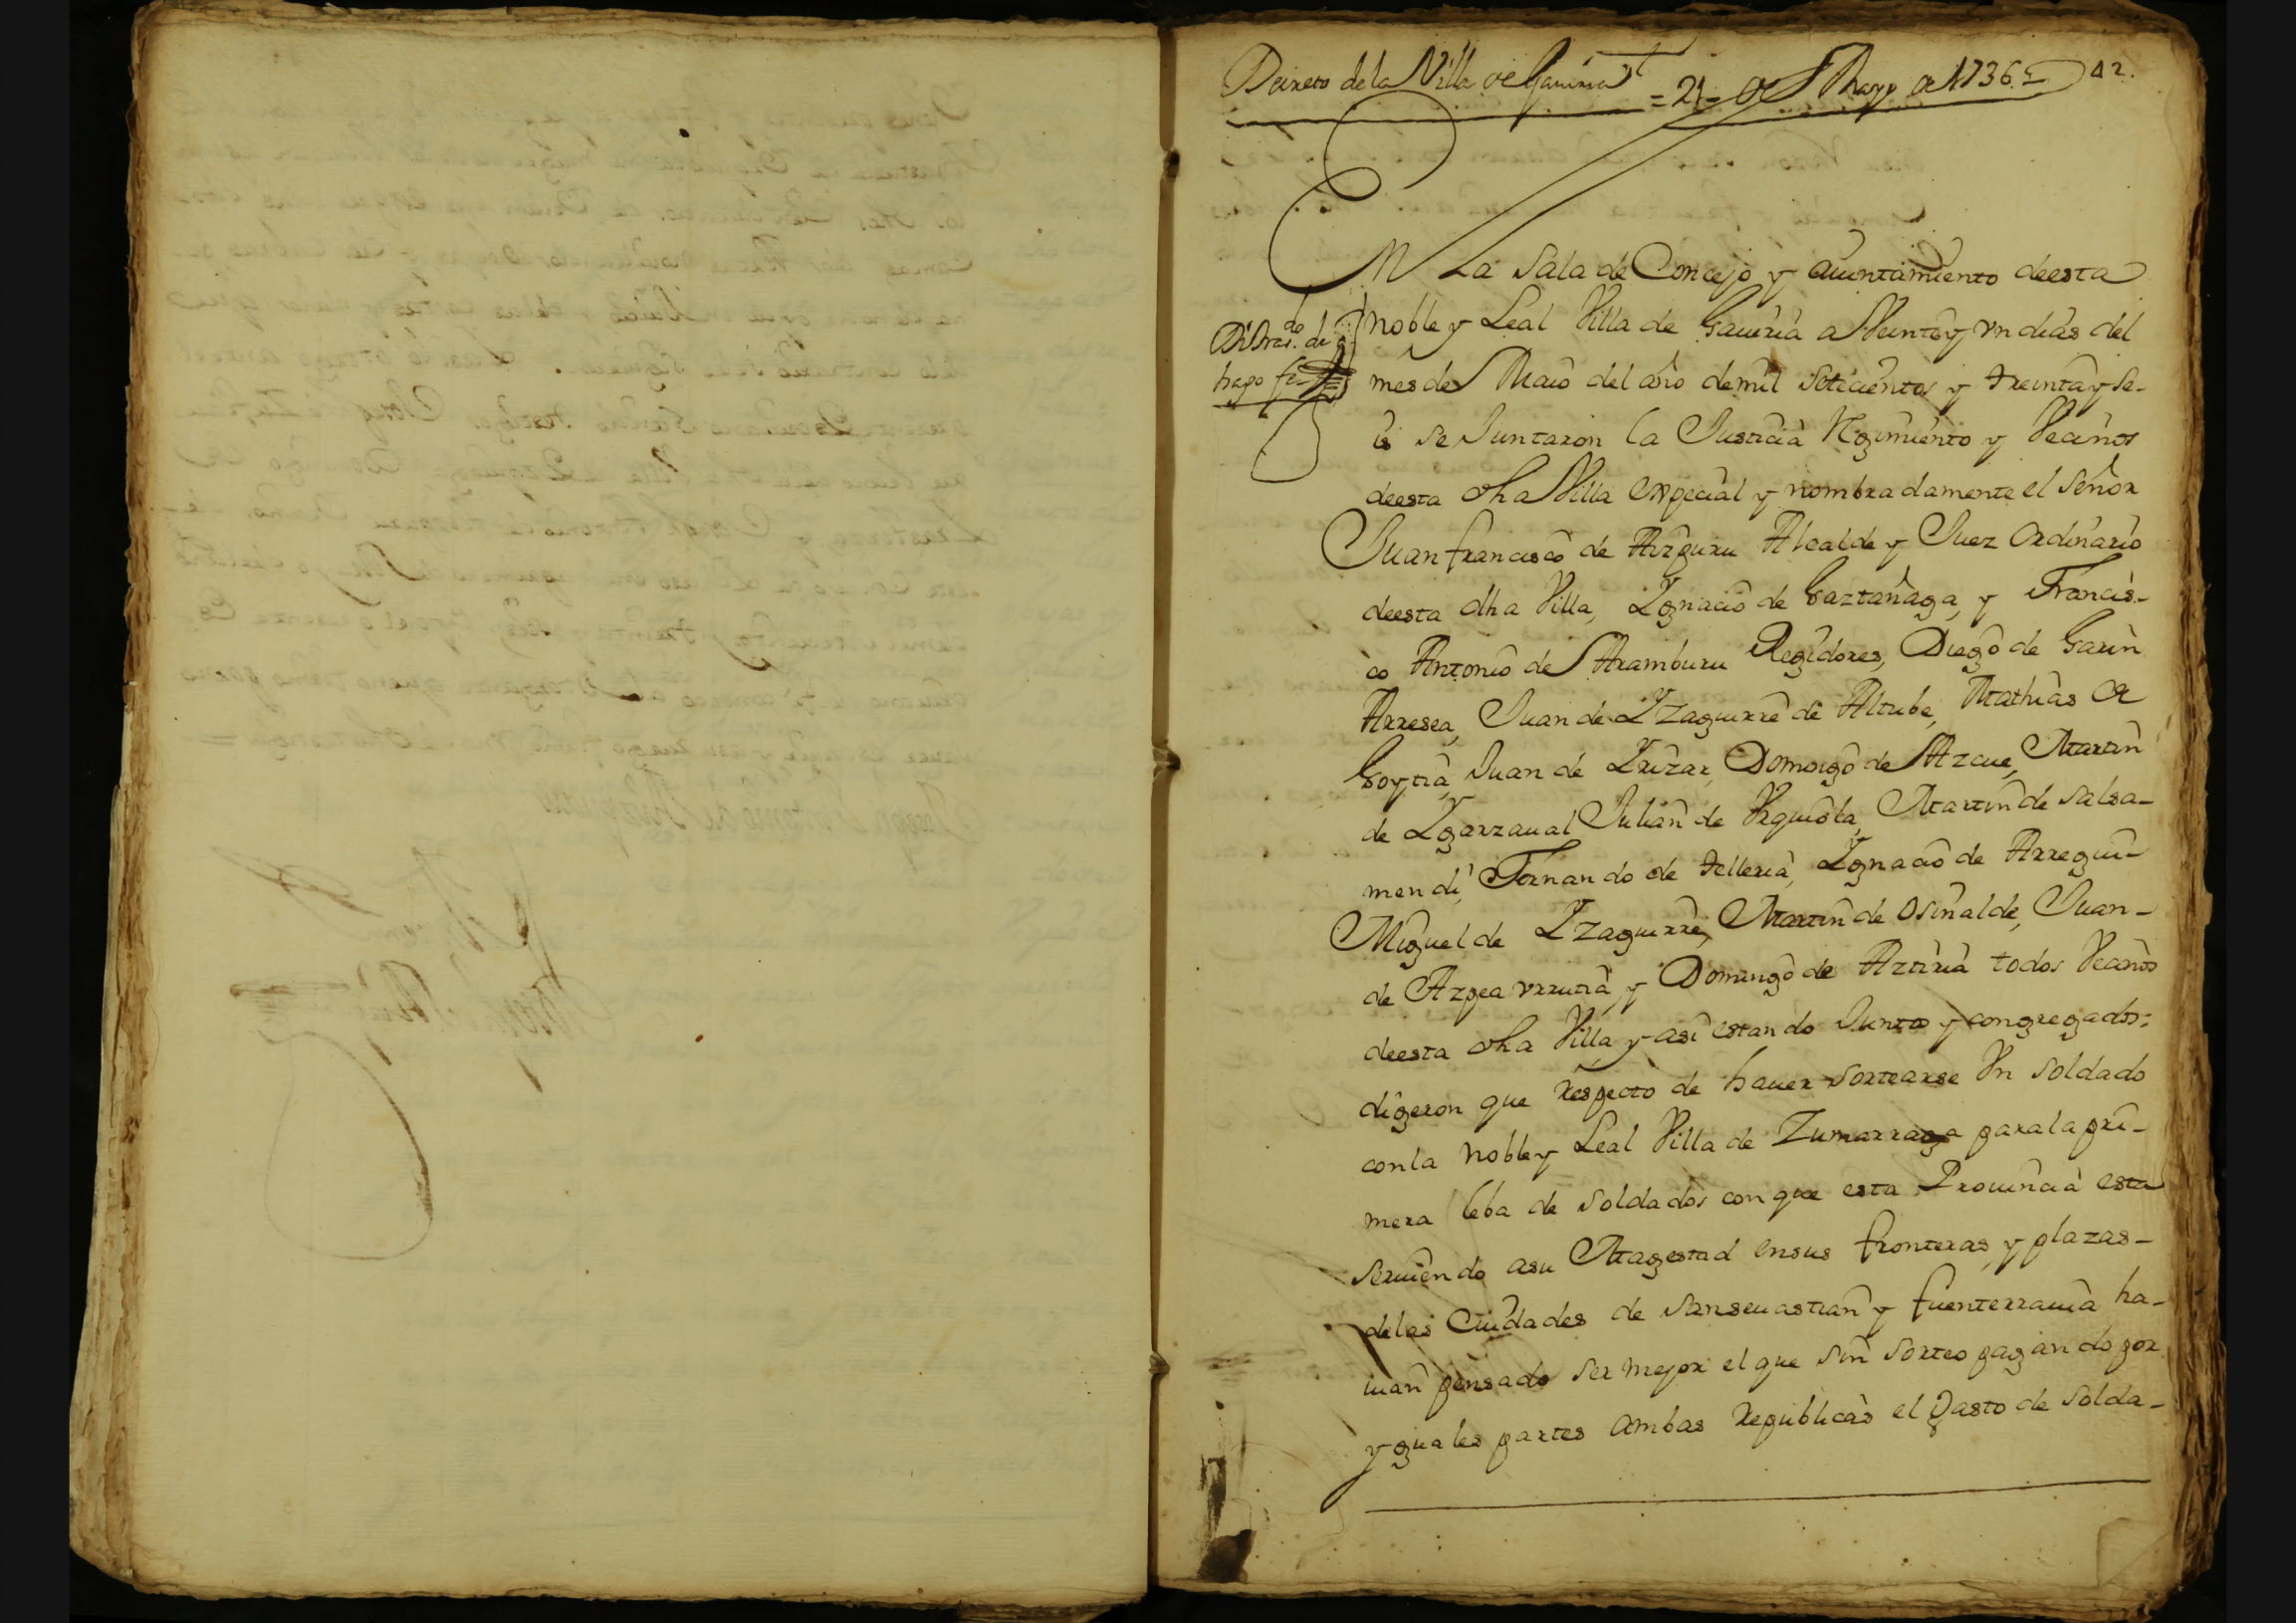 Decreto dela Villa de Gauiria
= 21 = de Mayo de 1736
42.
En La Sala de Concejo y aiuntamiento deesta
noble y Leal Villa de Gauiria a Veinte y vn dias del
hago fe
mes de Maio del año demil Setecientos y treinta y se-
is se Juntaron la Justicia Regimiento y Vecinos
deesta dha Villa espeçial y nombradamente el Señor
Juan francisco de Aizguru Alcalde y Juez ordinario
deesta dha Villa, Ygnacio de Gaztañaga, y Francis-
co Antonio de Aramburu Regidores, Diego de Garin
Arresea, Juan de Yzaguirre de Altube, Mathias de
Goytia, Juan de Yrizar, Domingo de Azcue, Martin
de Ygarzaual Julian de Vrquiola, Martin de Salsa-
mendi, Fernando de telleria, Ygnacio de Arregui-
Miguel de Yzaguirre, Martin de Osinalde, Juan-
de Azpea vrrutia, y Domingo de Aztiria todos Vecinos
deesta dha Villa, y asi estando Juntos y congregados:
digeron que respecto de hauer sortearse Vn Soldado
conla noble y Leal Villa de Zumarraga parala pri-
mera leba de Soldados con que esta Prouincia esta
Seruiendo asu Magestad ensus fronteras, y plazas-
delas Ciudades de Sanseuastian y fuenterrauia ha-
uian pensado ser mejor el que sin sorteo pagando por
yguales partes ambas Republicas el gasto de Solda-